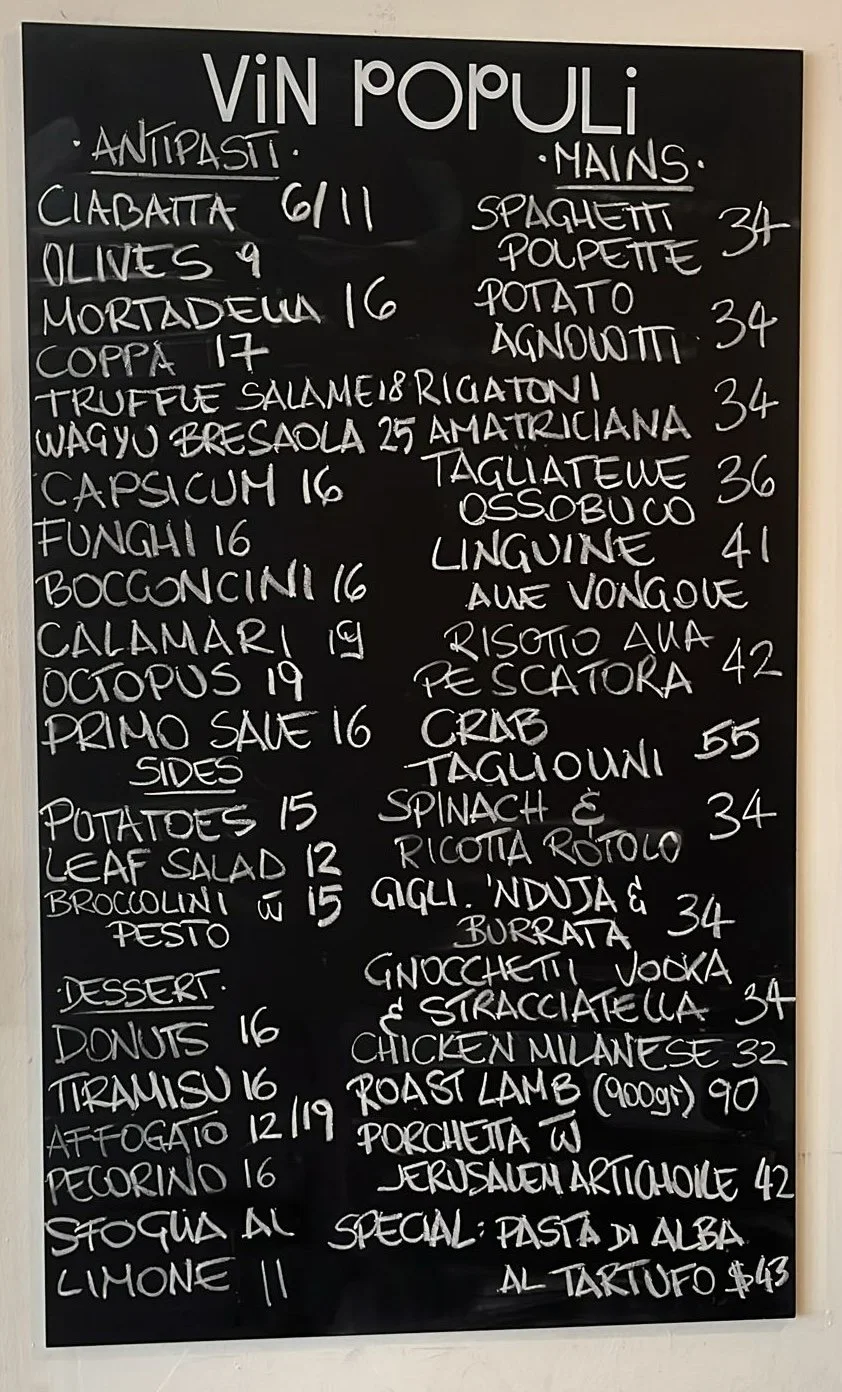 ViN POPULi
· ANTIPASTI ·
CIABATTA 6/11
OLIVES 9
MORTADELLA 16
COPPA 17
TRUFFLE SALAME 18
WAGYU BRESAOLA 25
CAPSICUM 16
FUNGHI 16
BOCCONCINI 16
CALAMARI 19
OCTOPUS 19
PRIMO SALE 16
SIDES
POTATOES 15
LEAF SALAD 12
BROCCOLINI w̄ 15
PESTO
· DESSERT ·
DONUTS 16
TIRAMISU 16
AFFOGATO 12/19
PECORINO 16
SFOGLIA AL
LIMONE 11
· MAINS ·
SPAGHETTI 34
POLPETTE
POTATO
AGNOLOTTI 34
RIGATONI 34
AMATRICIANA
TAGLIATELLE 36
OSSOBUCO
LINGUINE 41
ALLE VONGOLE
RISOTTO ALLA
PESCATORA 42
CRAB
TAGLIOLINI 55
SPINACH & 34
RICOTTA ROTOLO
GIGLI. 'NDUJA &
BURRATA 34
GNOCCHETTI VODKA
& STRACCIATELLA 34
CHICKEN MILANESE 32
ROAST LAMB (900gr) 90
PORCHETTA w̄
JERUSALEM ARTICHOKE 42
SPECIAL: PASTA DI ALBA
AL TARTUFO $43